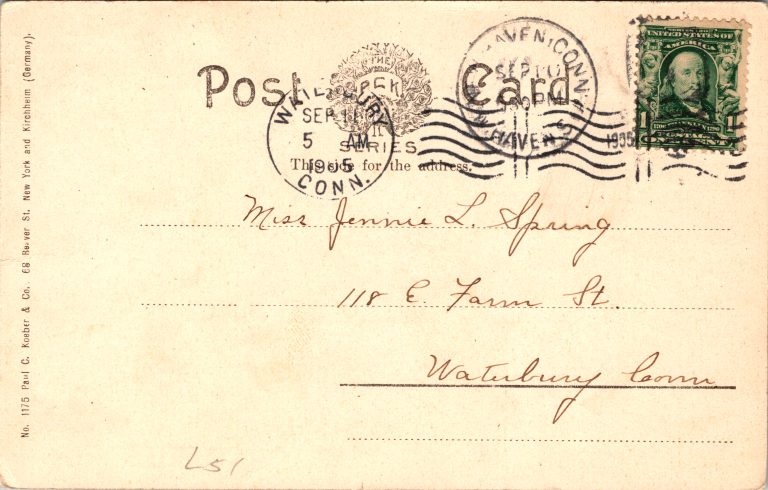 Post Card
THE
PCK
SERIES
This side for the address.
WATERBURY
SEP 11
5 AM
1905
CONN.
HAVEN, CONN.
SEP 10
PM
W. HAVEN S
1905
SERIES 1902
UNITED STATES OF
AMERICA
1
1
Miss Jennie L. Spring
118 E. Farm St.
Waterbury Conn
No. 1175 Paul C. Koeber & Co. 68 Reaver St. New York and Kirchheim (Germany).
L51